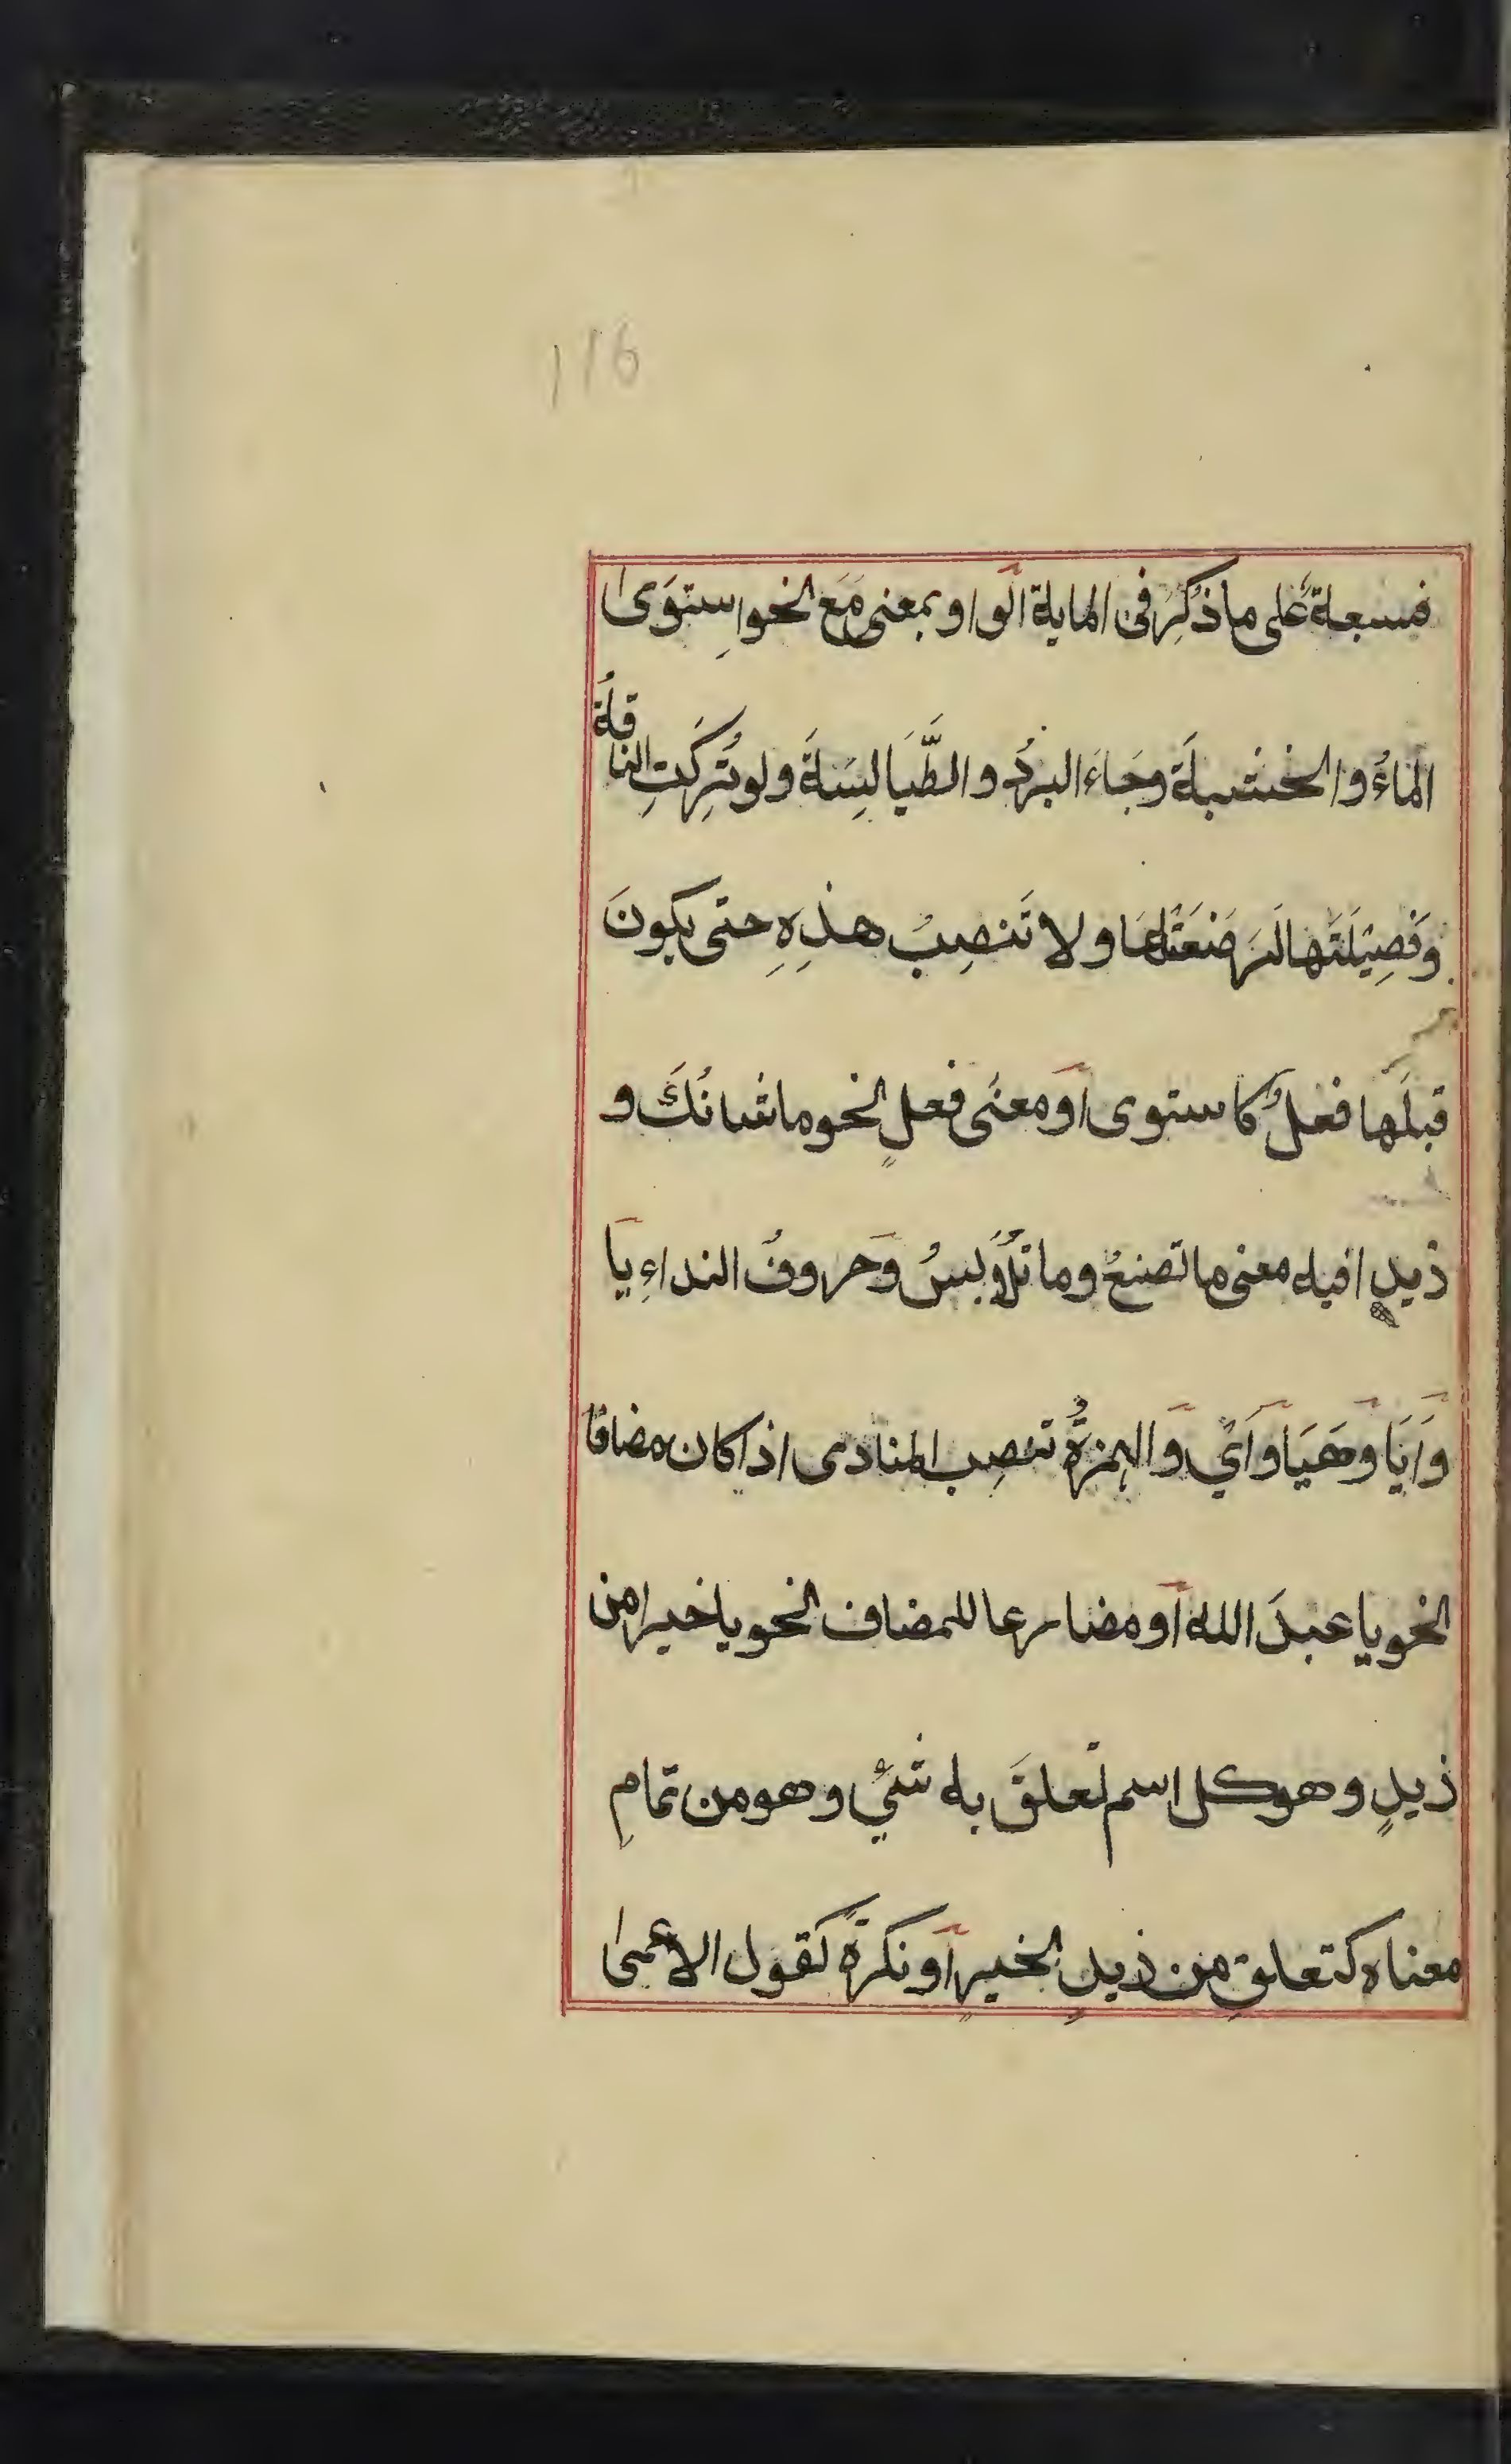 116
فسبعة على ما ذُكِرَ في الماية الواو بمعنى مَعَ الخو استوَى
الماءُ والخشبة وجَاءَ البردُ والطَّيَالِسَةَ ولو تُرِكَتِ الناقةُ
وَفَصِيْلَتَها لَرَضَعَتْهَا ولا تَنصِبُ هذِهِ حتى يكونَ
قبلَها فعلٌ كاستوى أو معنَى فعلٍ الخو ما شانُكَ و
ذيدٍ افيه معنى ما تصنعُ وما تُلَابسُ وَحروفُ النداءِ يَا
وَاَيَا وهَيَا وَاَيْ وَالهمزةُ تنصِب المنادى اذا كان مضافًا
الخو يا عبدَ الله اَو مضارعا للمضاف الخو يا خيرا من
ذيدٍ وهو كل اسم تعلقَ به شئٌ وهو من تمامِ
معناه كتعلقِ من ذيدٍ الخيرٍ اَو نكرةً كقول الاعمى